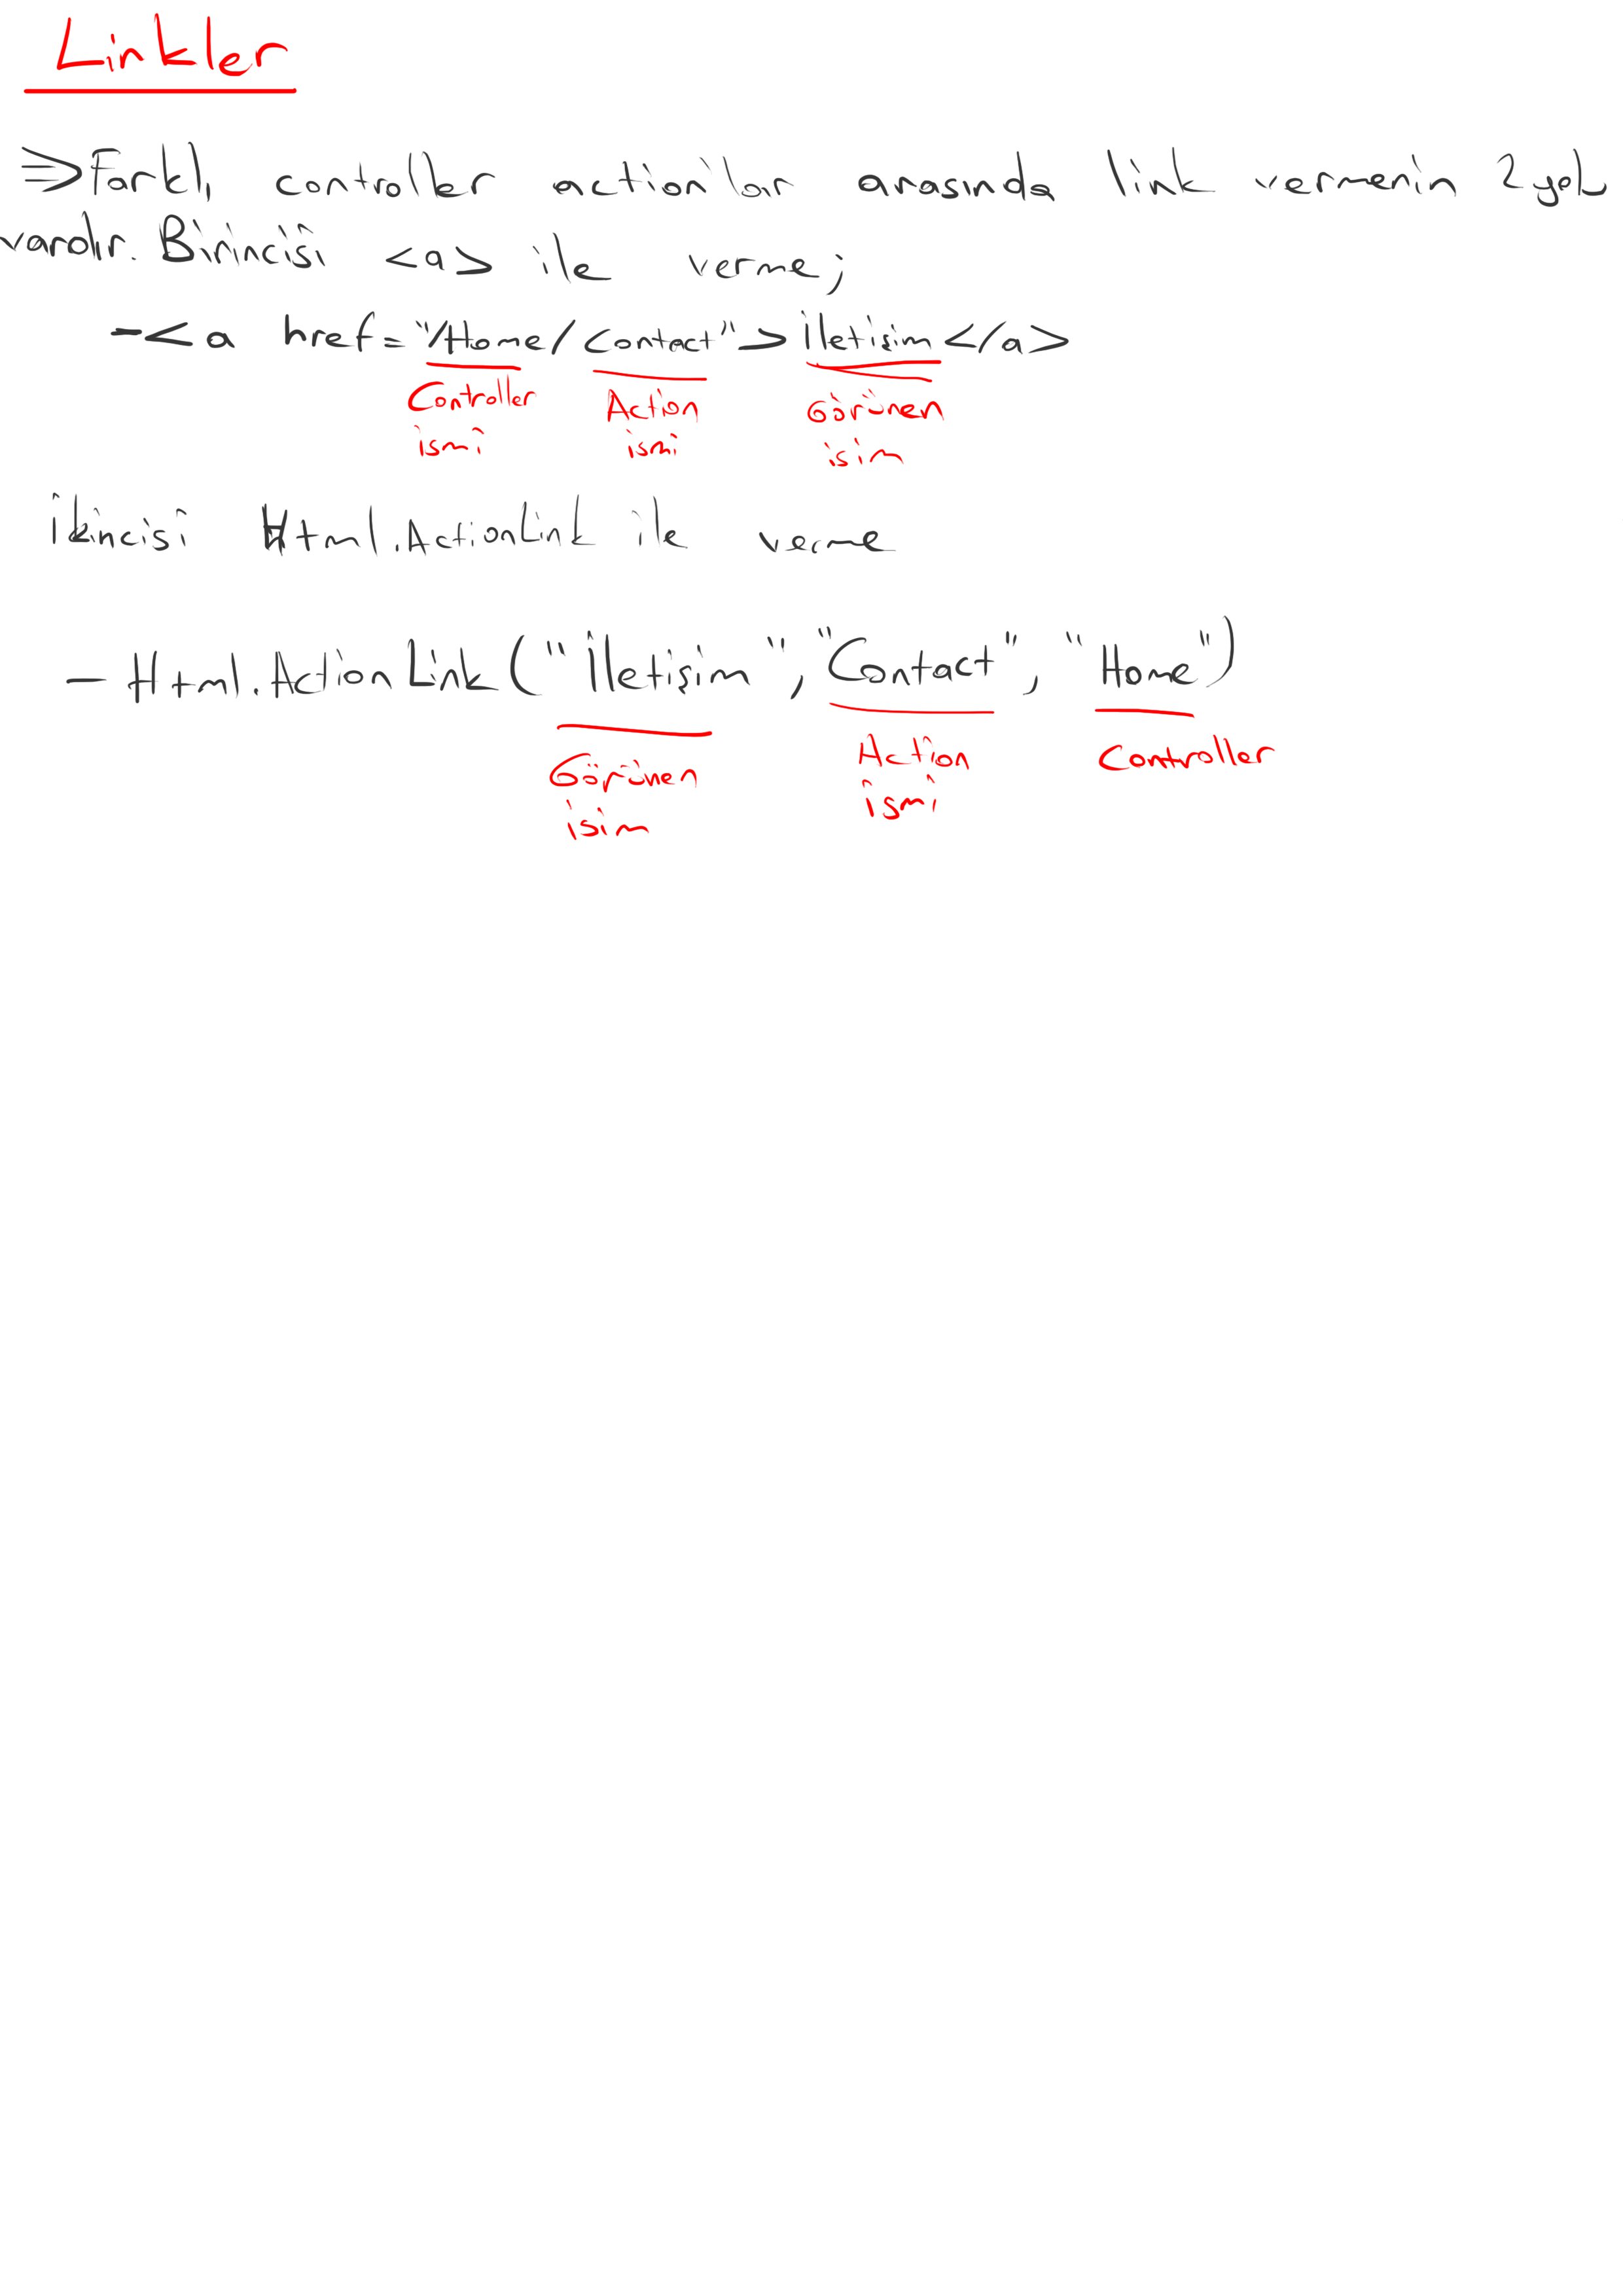 Linkler
=>Farklı controller actionlar arasında link vermenin 2 yolu
vardır. Birincisi <a> ile verme;
-<a href="/Home/Contact">İletişim</a>
Controller Action Görünen
ismi ismi isim
İkincisi Html.ActionLink ile verme
- Html.ActionLink("İletişim", "Contact", "Home")
Görünen Action Controller
isim ismi